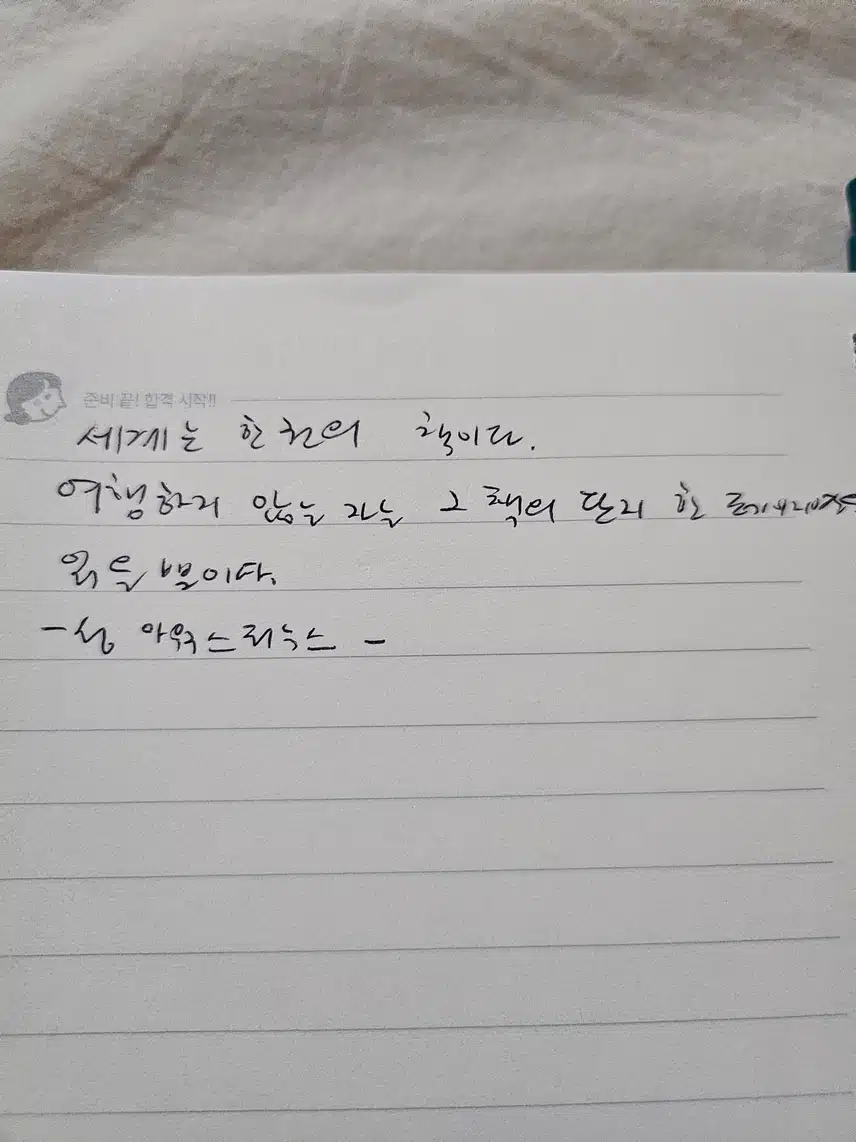 준비 끝! 합격 시작!!
세계는 한 권의 책이다.
여행하지 않는 자는 그 책의 단지 한 페이지만을
읽을 뿐이다.
- 성 아우구스티누스 -